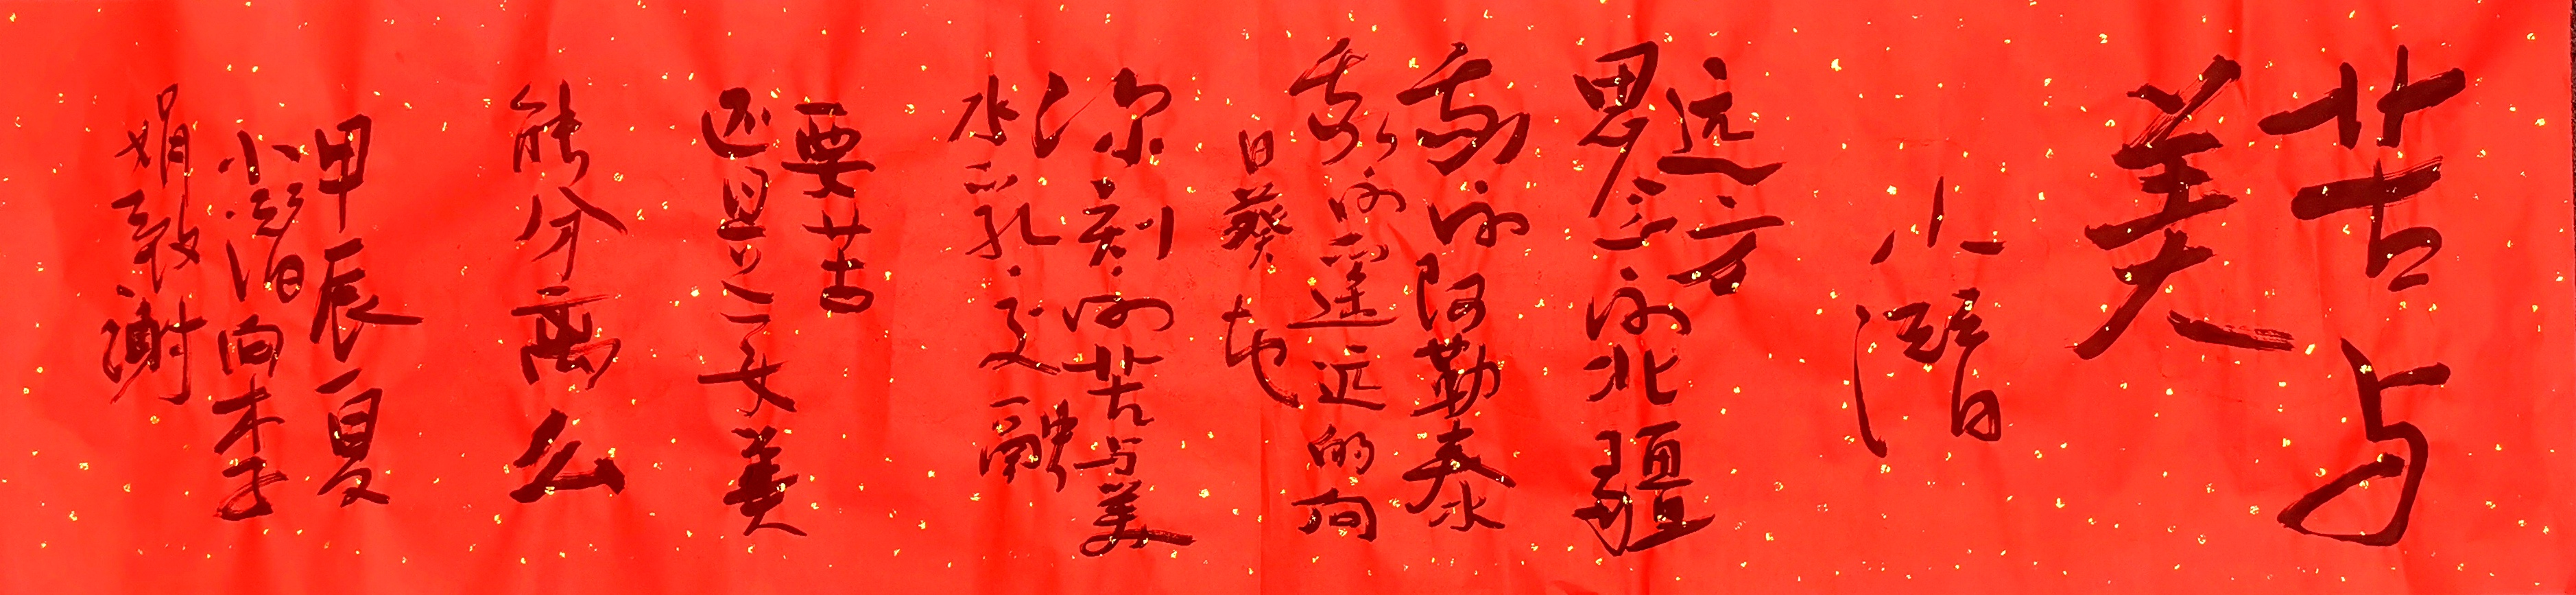 苦与
美
小潜
远方
思念的北疆
我的阿勒泰
我的遥远的向
日葵地
深刻的苦与美
水乳交融
要苦
还是要美
能分离么
甲辰夏
小潜向李
娟致谢